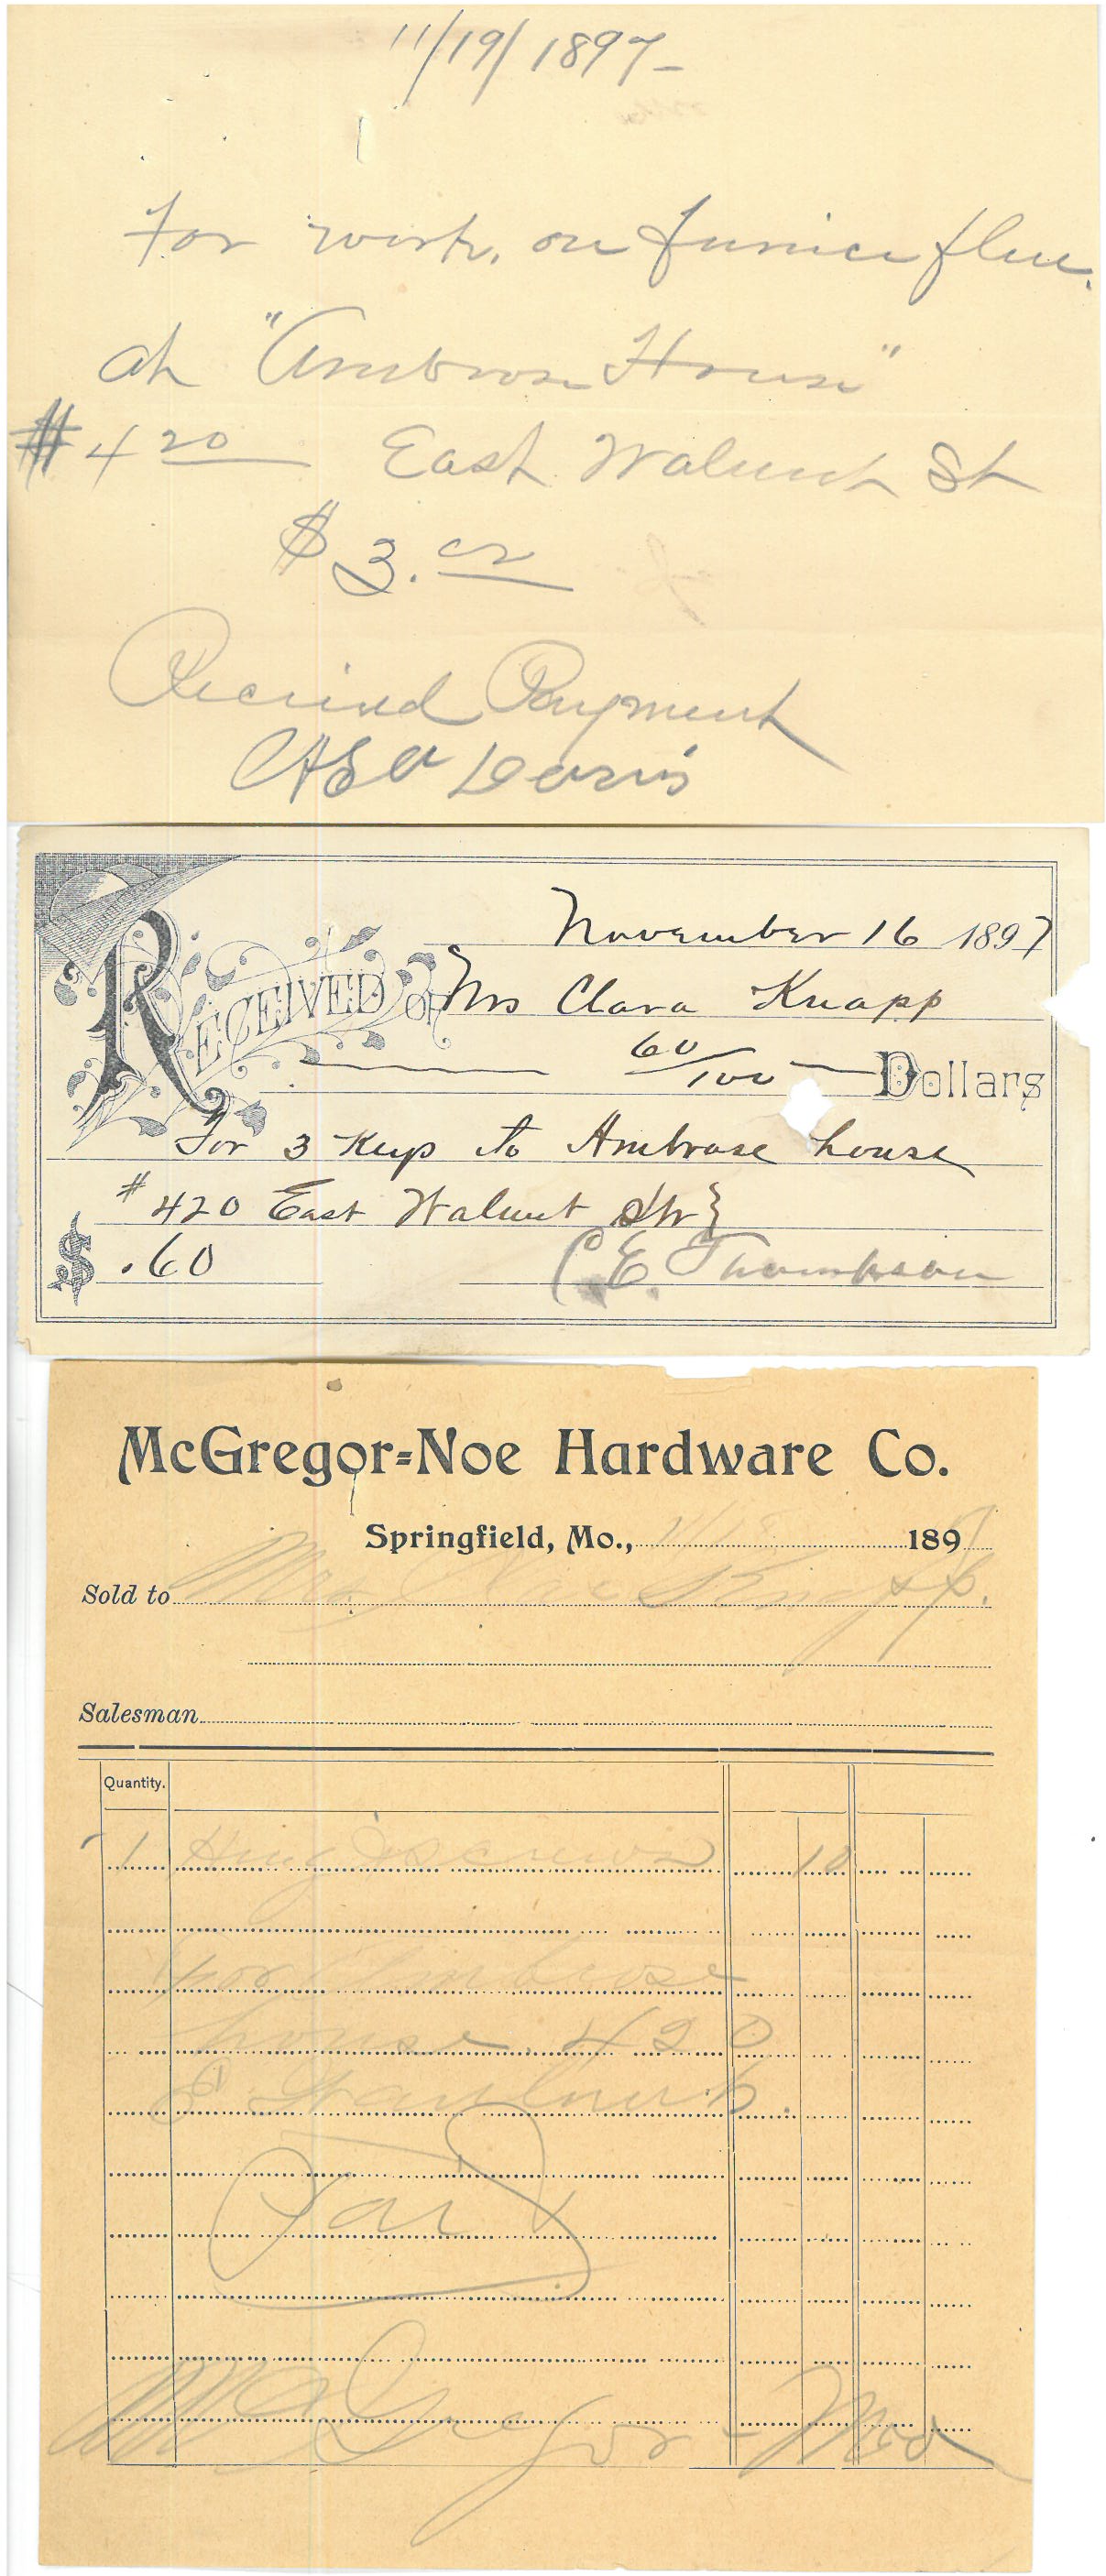 11/19/1897-
For work, on furnice flue.
at "Ambrose House"
#420 East Walnut St
$3.00
Received Payment
Davis
November 16 1897
RECEIVED OF Mrs Clara Knapp
60/100 Dollars
For 3 Keys to Ambrose house
#420 East Walnut St
$ .60 C. E. Thompson
McGregor-Noe Hardware Co.
Springfield, Mo., 11/18 1897
Sold to Mrs Knapp.
Salesman
Quantity.
1 Screws 10
For Ambrose
house. 420
E Waulnut.
Paid
McGregor - Noe